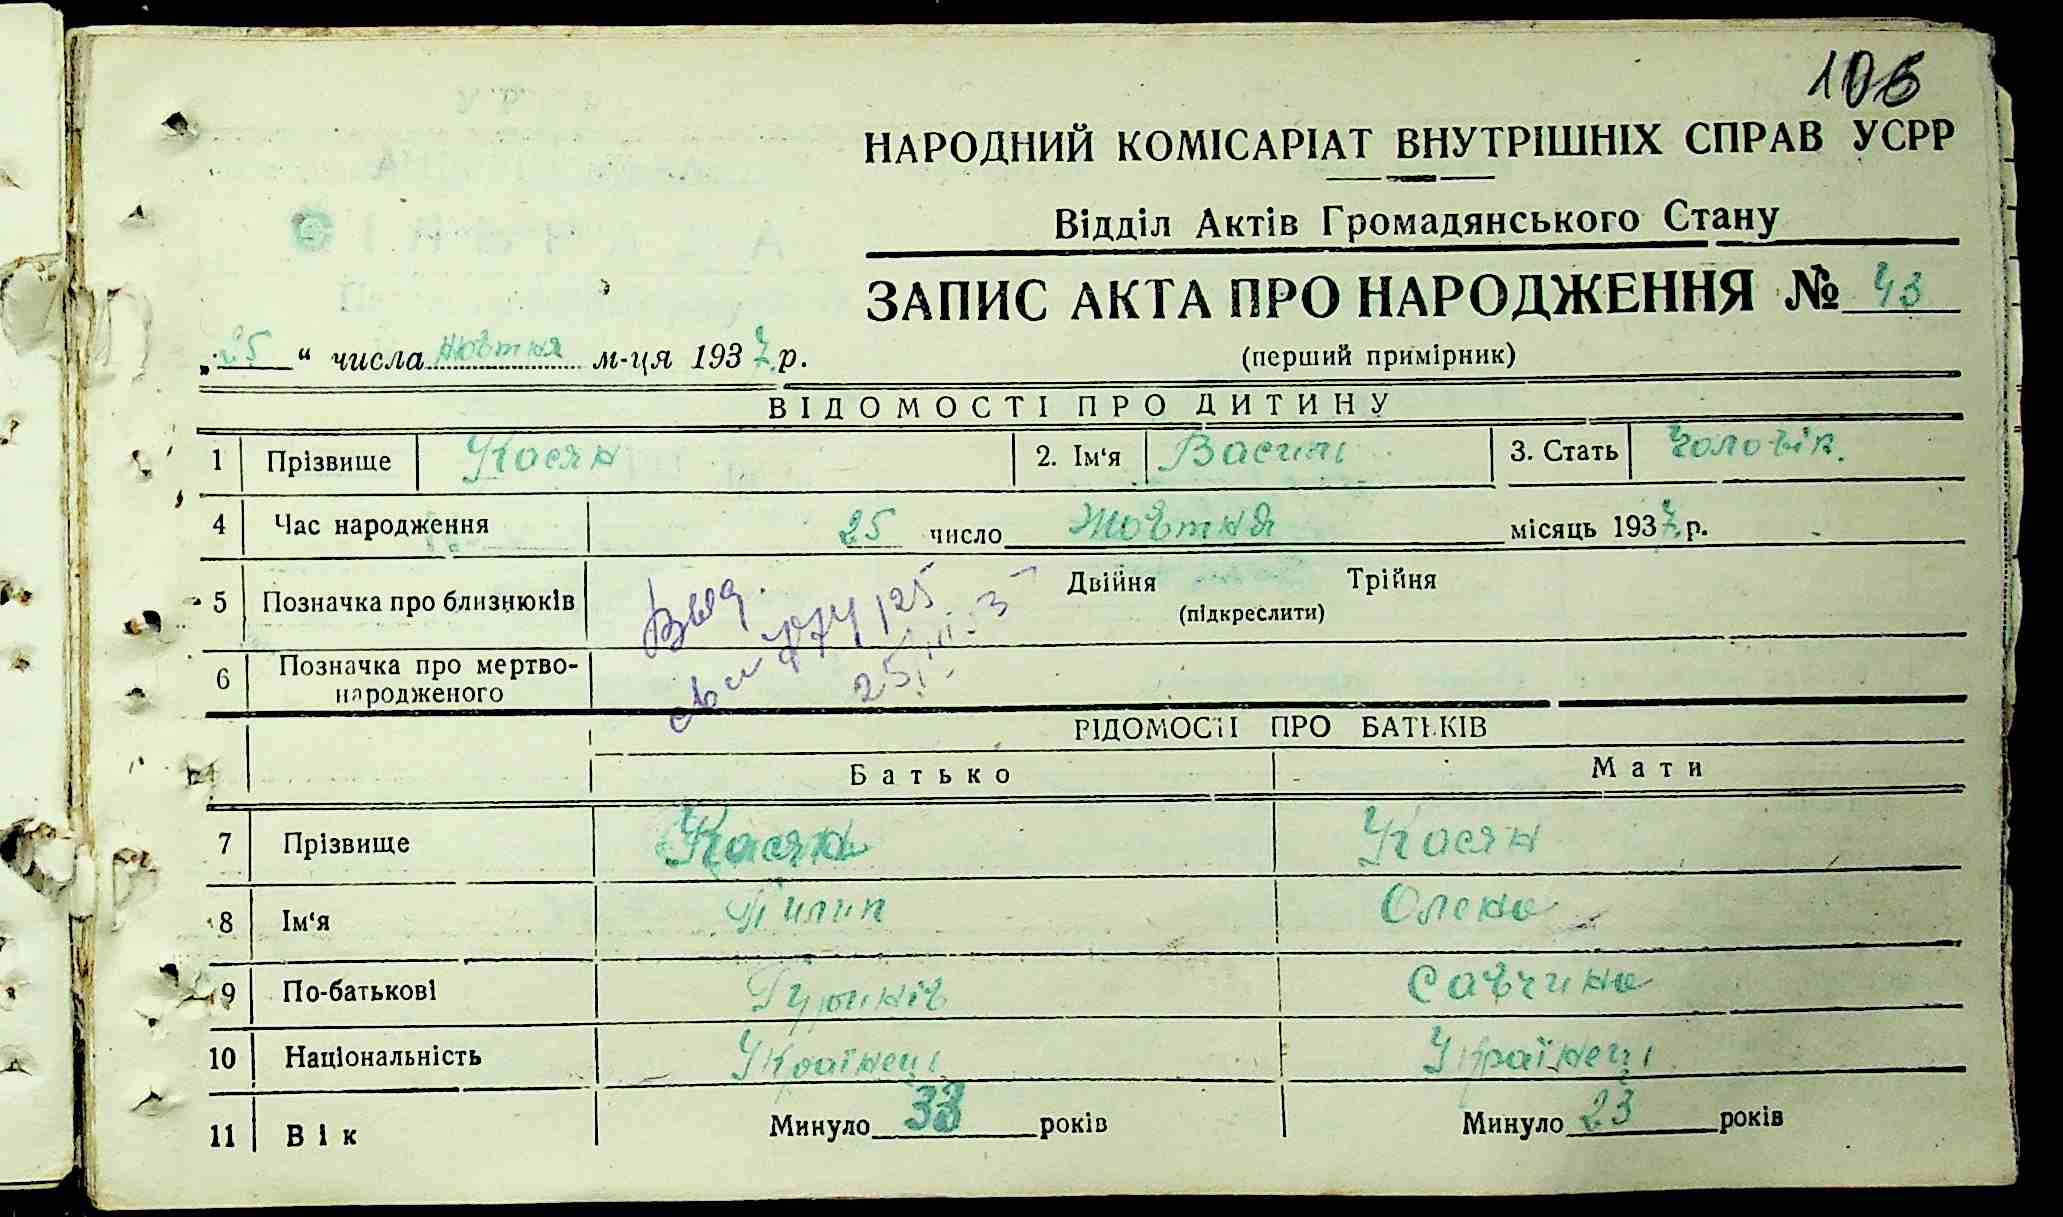 106
НАРОДНИЙ КОМІСАРІАТ ВНУТРІШНІХ СПРАВ УСРР
Відділ Актів Громадянського Стану
ЗАПИС АКТА ПРО НАРОДЖЕННЯ № 43
„25“ числа жовтня м-ця 1937 р.
(перший примірник)
ВІДОМОСТІ ПРО ДИТИНУ
1 Прізвище Косян 2. Ім‘я Василь 3. Стать Чоловік.
4 Час народження 25 число жовтня місяць 1937 р.
5 Позначка про близнюків Двійня Трійня
(підкреслити)
Выд.
6 Позначка про мертво-
народженого
ВІДОМОСТІ ПРО БАТЬКІВ
Батько Мати
7 Прізвище Косян Косян
8 Ім‘я Пилип Олена
9 По-батькові Савчина
10 Національність Українець Українець
11 Вік Минуло 33 років Минуло 23 років